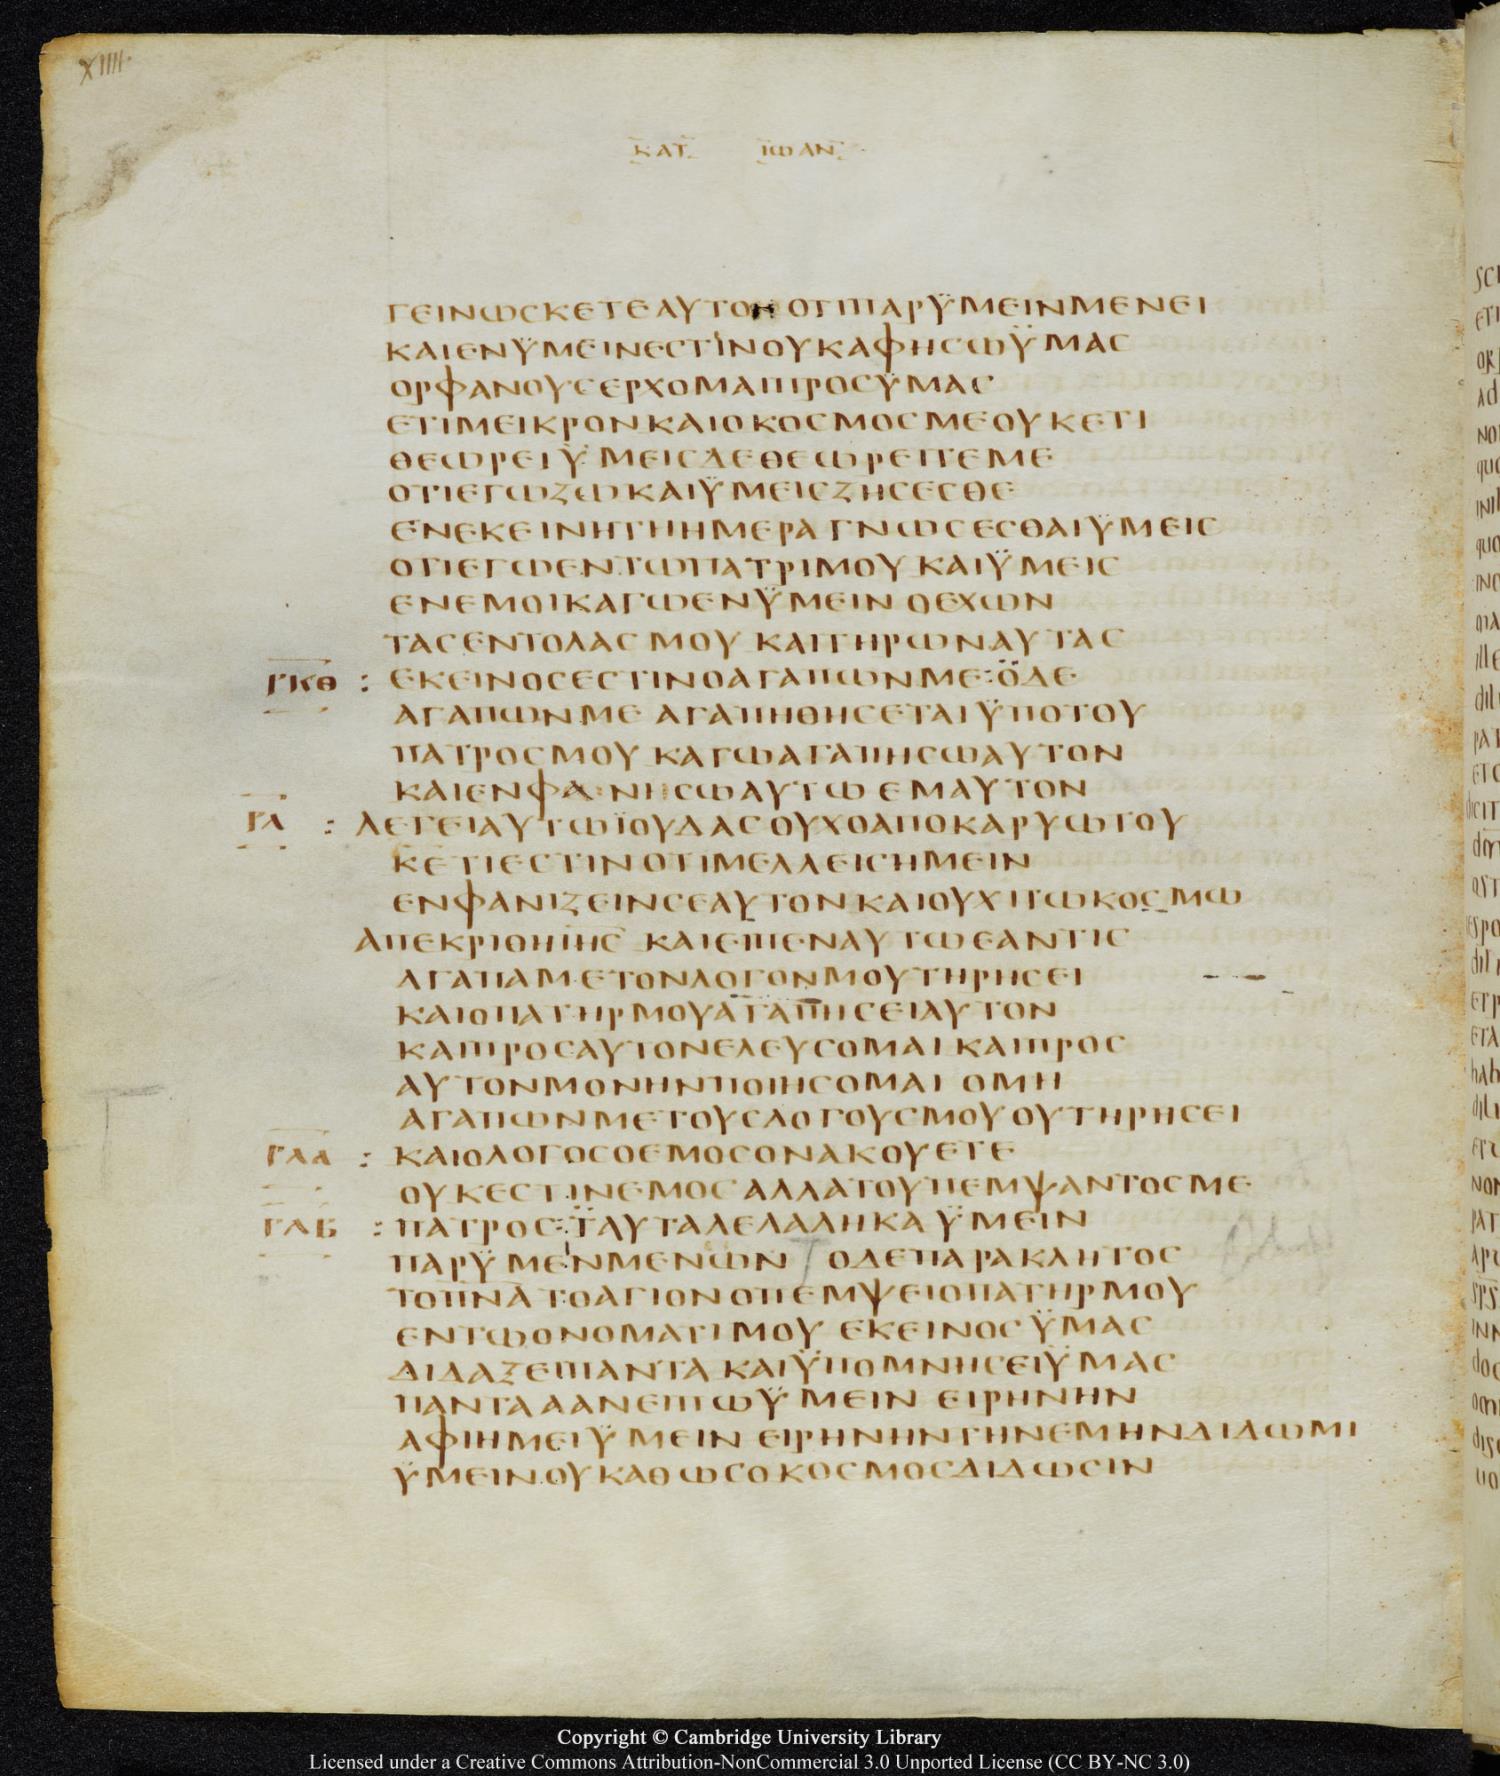 XIIII
ΚΑΤ ΙΩΑΝ
ΓΕΙΝΩΣΚΕΤΕΑΥΤΟΝ ΟΤΙΠΑΡΫΜΕΙΝΜΕΝΕΙ
ΚΑΙΕΝΫΜΕΙΝΕΣΤΙΝΟΥΚΑΦΗΣΩΫΜΑΣ
ΟΡΦΑΝΟΥΣΕΡΧΟΜΑΙΠΡΟΣΫΜΑΣ
ΕΤΙΜΕΙΚΡΟΝΚΑΙΟΚΟΣΜΟΣΜΕΟΥΚΕΤΙ
ΘΕΩΡΕΙΫΜΕΙΣΔΕΘΕΩΡΕΙΤΕΜΕ
ΟΤΙΕΓΩΖΩΚΑΙΫΜΕΙΣΖΗΣΕΣΘΕ
ΕΝΕΚΕΙΝΗΤΗΗΜΕΡΑΓΝΩΣΕΣΘΑΙΫΜΕΙΣ
ΟΤΙΕΓΩΕΝΤΩΠΑΤΡΙΜΟΥΚΑΙΫΜΕΙΣ
ΕΝΕΜΟΙΚΑΓΩΕΝΫΜΕΙΝ ΟΕΧΩΝ
ΤΑΣΕΝΤΟΛΑΣΜΟΥ ΚΑΙΤΗΡΩΝΑΥΤΑΣ
ΓΚΘ : ΕΚΕΙΝΟΣΕΣΤΙΝΟΑΓΑΠΩΝΜΕ:ΟΔΕ
ΑΓΑΠΩΝΜΕ ΑΓΑΠΗΘΗΣΕΤΑΙΫΠΟΤΟΥ
ΠΑΤΡΟΣΜΟΥ ΚΑΓΩΑΓΑΠΗΣΩΑΥΤΟΝ
ΚΑΙΕΝΦΑΝΗΣΩΑΥΤΩ ΕΜΑΥΤΟΝ
ΓΛ : ΛΕΓΕΙΑΥΤΩΪΟΥΔΑΣΟΥΧΟΑΠΟΚΑΡΥΩΤΟΥ
ΚΕΤΙΕΣΤΙΝΟΤΙΜΕΛΛΕΙΣΗΜΕΙΝ
ΕΝΦΑΝΙΖΕΙΝΣΕΑΥΤΟΝΚΑΙΟΥΧΙΤΩΚΟΣΜΩ
ΑΠΕΚΡΙΘΗΙΗΣ ΚΑΙΕΙΠΕΝΑΥΤΩΕΑΝΤΙΣ
ΑΓΑΠΑΜΕΤΟΝΛΟΓΟΝΜΟΥΤΗΡΗΣΕΙ
ΚΑΙΟΠΑΤΗΡΜΟΥΑΓΑΠΗΣΕΙΑΥΤΟΝ
ΚΑΙΠΡΟΣΑΥΤΟΝΕΛΕΥΣΟΜΑΙ ΚΑΙΠΡΟΣ
ΑΥΤΟΝΜΟΝΗΝΠΟΙΗΣΟΜΑΙ ΟΜΗ
ΑΓΑΠΩΝΜΕΤΟΥΣΛΟΓΟΥΣΜΟΥΟΥΤΗΡΗΣΕΙ
ΓΛΑ : ΚΑΙΟΛΟΓΟΣΟΕΜΟΣΟΝΑΚΟΥΕΤΕ
ΟΥΚΕΣΤΙΝΕΜΟΣΑΛΛΑΤΟΥΠΕΜΨΑΝΤΟΣΜΕ
ΓΛΒ : ΠΑΤΡΟΣ:ΤΑΥΤΑΛΕΛΑΛΗΚΑΫΜΕΙΝ
ΠΑΡΫΜΕΙΝΜΕΝΩΝ ΟΔΕΠΑΡΑΚΛΗΤΟΣ
ΤΟΠΝΑΤΟΑΓΙΟΝΟΠΕΜΨΕΙΟΠΑΤΗΡΜΟΥ
ΕΝΤΩΟΝΟΜΑΤΙΜΟΥ ΕΚΕΙΝΟΣΫΜΑΣ
ΔΙΔΑΞΕΙΠΑΝΤΑ ΚΑΙΫΠΟΜΝΗΣΕΙΫΜΑΣ
ΠΑΝΤΑΑΑΝΕΙΠΩΫΜΕΙΝ ΕΙΡΗΝΗΝ
ΑΦΙΗΜΕΙΫΜΕΙΝ ΕΙΡΗΝΗΝΤΗΝΕΜΗΝΔΙΔΩΜΙ
ΫΜΕΙΝΟΥΚΑΘΩΣΟΚΟΣΜΟΣΔΙΔΩΣΙΝ
Copyright © Cambridge University Library
Licensed under a Creative Commons Attribution-NonCommercial 3.0 Unported License (CC BY-NC 3.0)